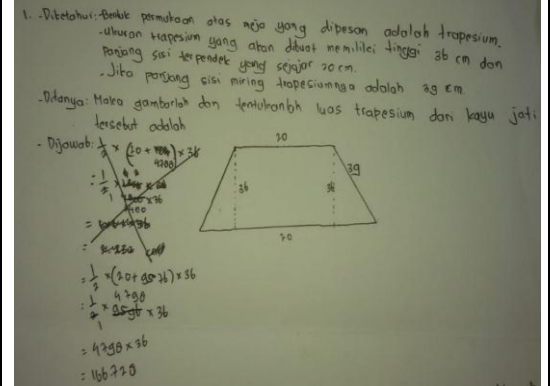 1. - Diketahui: - Bentuk permukaan atas meja yang dipesan adalah trapesium.
- Ukuran trapesium yang akan dibuat memiliki tinggi 36 cm dan
panjang sisi terpendek yang sejajar 20 cm.
- Jika panjang sisi miring trapesiumnya adalah 39 cm.
- Ditanya: Maka gambarlah dan tentukanlah luas trapesium dari kayu jati
tersebut adalah
- Dijawab: 1/2 × (20 + ) × 36
20
39
36
36
20
= 1/2 × (20 + 9576) × 36
4798
= 1/2 × 9596 × 36
1
= 4798 × 36
= 166720